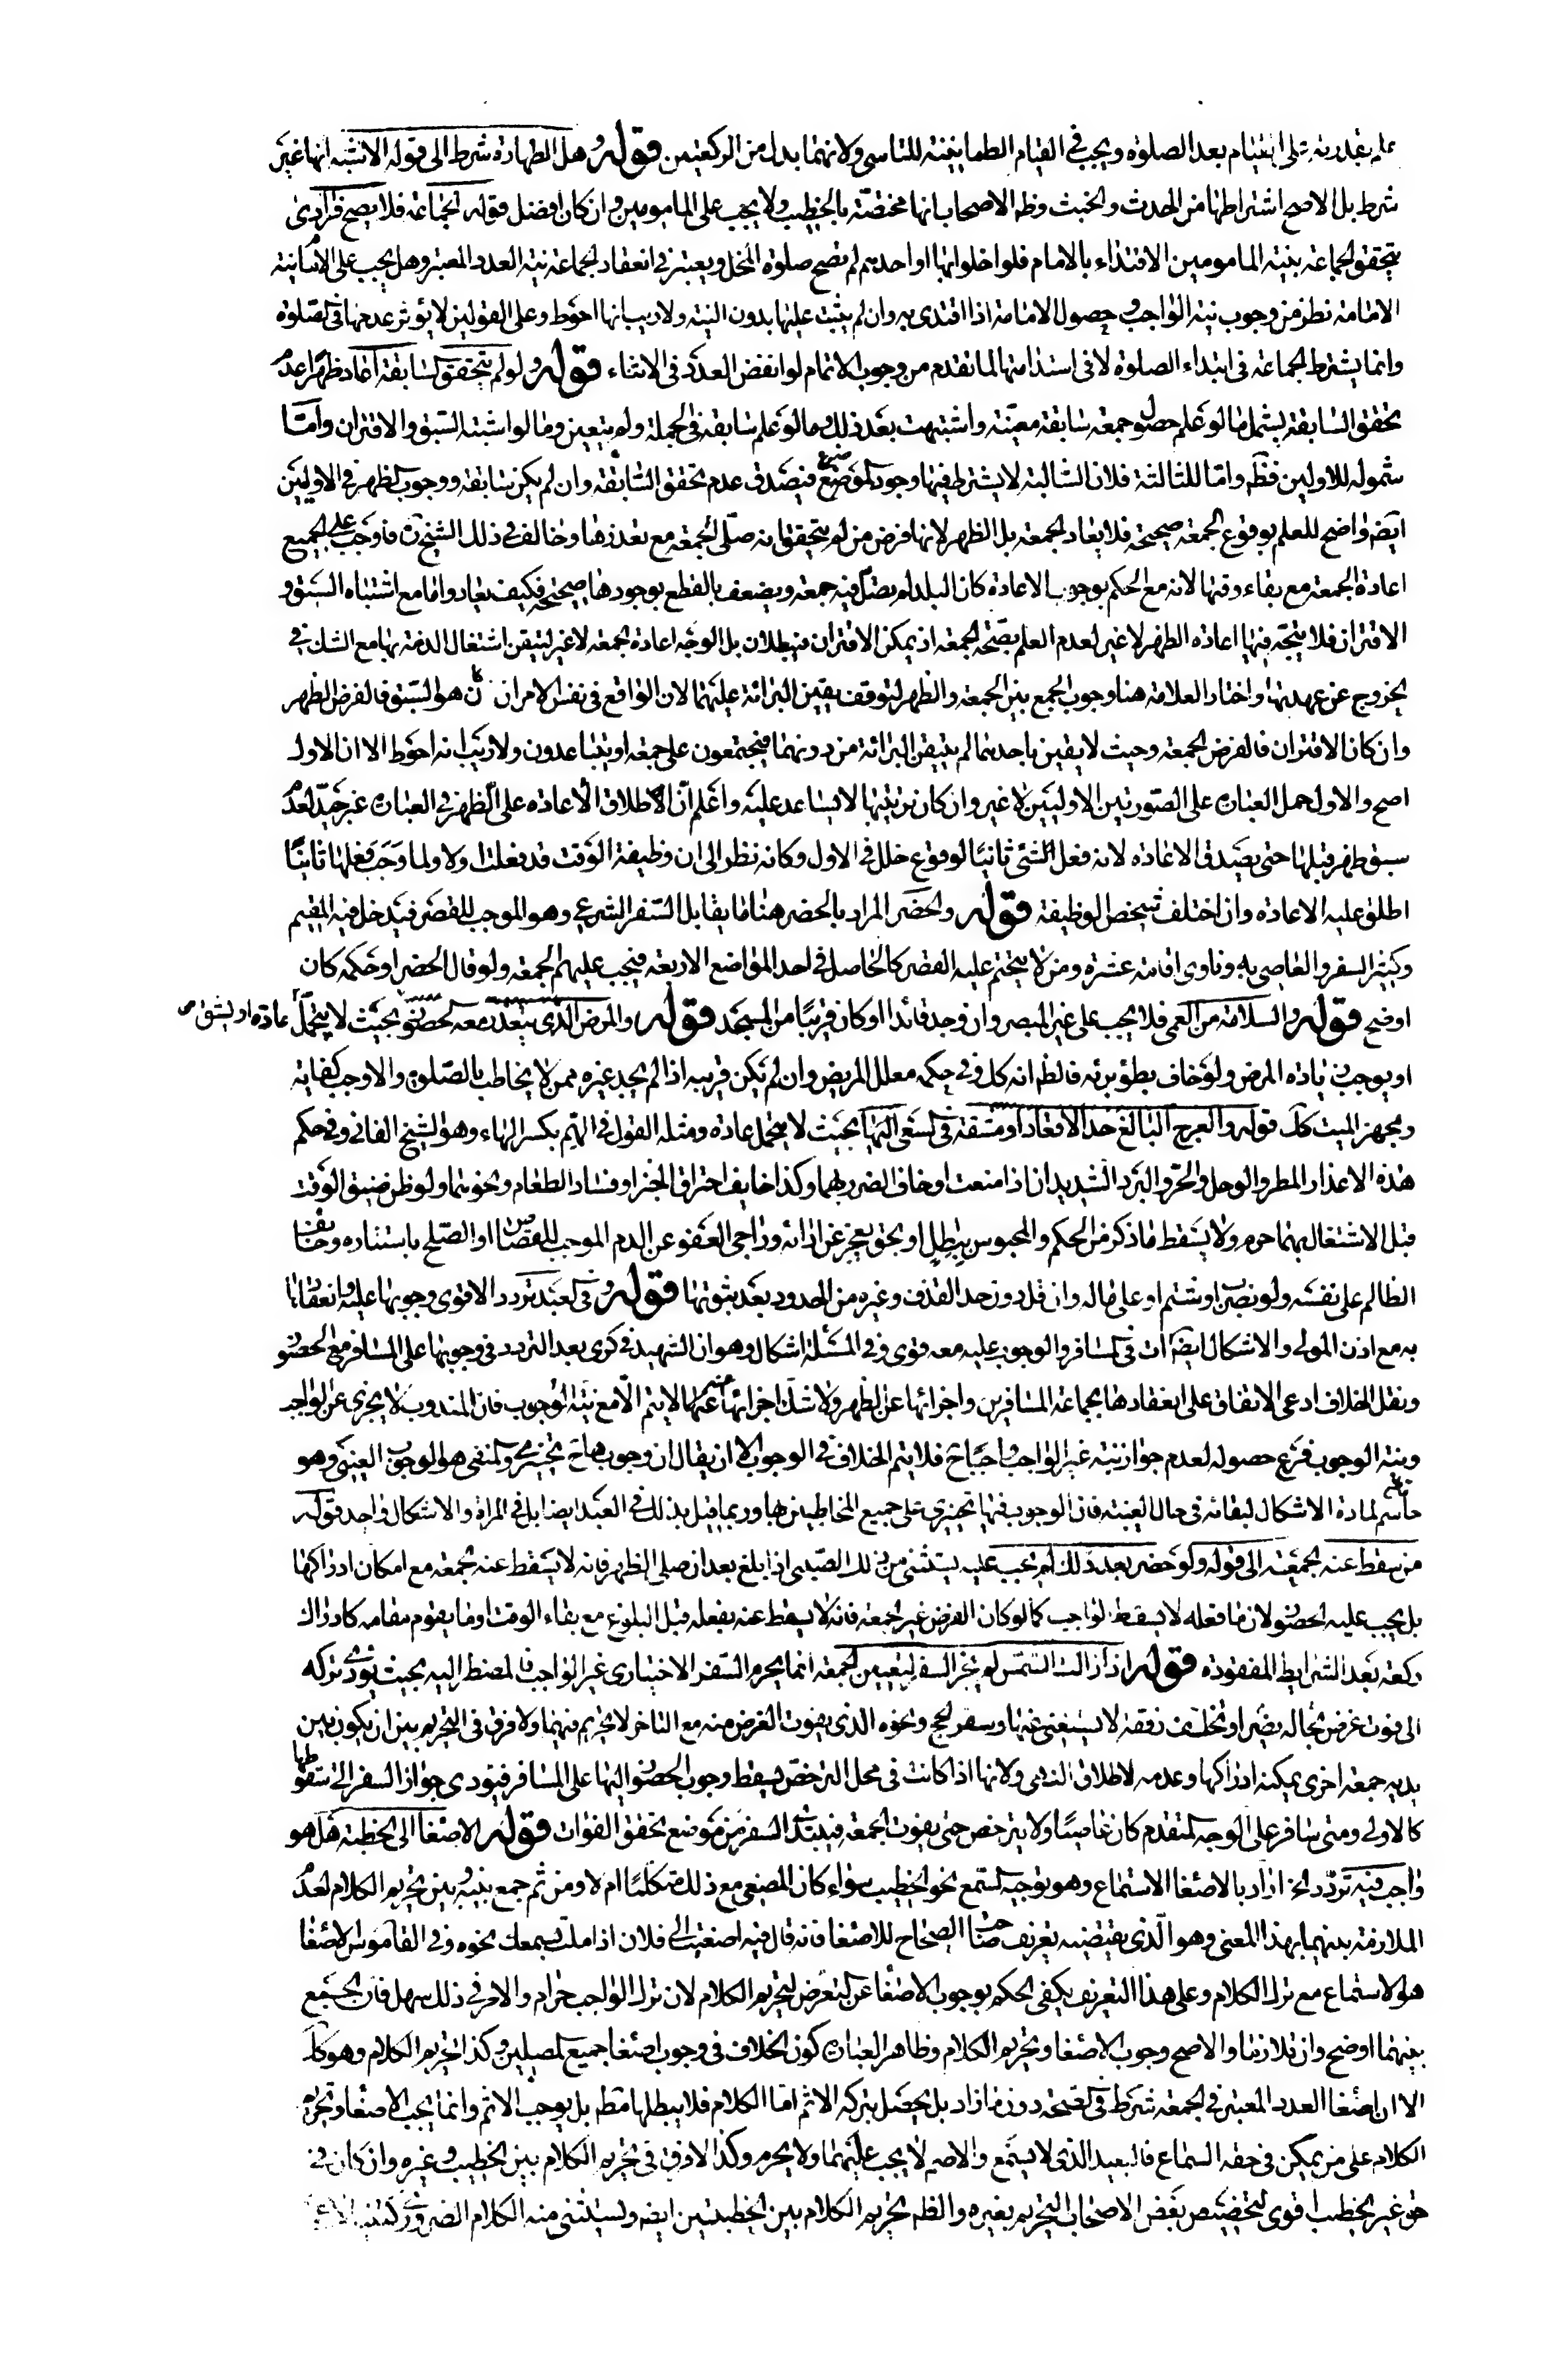 عليه بقدرته على القيام بعد الصلوة ويجب في القيام الطمانينة للتاسي ولانهما بدل من الركعتين قوله وهل الطهارة شرط الى قوله الاشبه انها غير
شرط بل الاصح اشتراطها من الحدث والخبث وظ الاصحاب انها مختصة بالخطيب ولا يجب على المامومين وان كان افضل قوله الجماعة فلا يصح فرادى
يتحقق الجماعة بنية المامومين الاقتداء بالامام فلو اخلوا بها او احدهم لم تصح صلوة المخل ويعتبر في انعقاد الجماعة نية العدد المعتبر وهل يجب على الامام نية
الامامة نظر من وجوب نية الواجب وحصول الامامة اذا اقتدى به وان لم يثبت عليها بدون النية ولا ريب انها احوط وعلى القولين لا يؤثر عدمها في الصلوة
وانما يشترط الجماعة في ابتداء الصلوة لا في استدامتها لما تقدم من وجوب الاتمام لو انفض العدد في الاثناء قوله ولو لم يتحقق السابقة اعاد ظهرا عدم
تحقق السابقة يشمل ما لو علم حصول جمعة سابقة معينة واشتبهت بعد ذلك وما لو علم سابقة في الجملة ولم يتعين وما لو اشتبه السبق والاقتران واما
شموله للاولين فظ واما للثالثة فلان السالبة لا يشترط فيها وجود الموضوع فيصدق عدم تحقق السابقة وان لم يكن سابقة ووجوب الظهر في الاوليين
ايض واضح للعلم بوقوع الجمعة صحيحة فلا يعاد الجمعة بل الظهر لانها فرض من لم يتحقق انه صلى الجمعة مع تعذرها وخالف في ذلك الشيخ ره فاوجب على الجميع
اعادة الجمعة مع بقاء وقتها لانه مع الحكم بوجوب الاعادة كان البلد لم يصل فيه جمعة ويضعف بالقطع بوجودها صحيحة فكيف يعاد واما مع اشتباه السبق و
الاقتران فلا يتجه فيها اعادة الظهر لا غير لعدم العلم بصحة الجمعة اذ يمكن الاقتران فيبطلان بل الوجه اعادة الجمعة لا غير لتيقن اشتغال الذمة بها مع الشك في
الخروج عن عهدتها واختار العلامة هنا وجوب الجمع بين الجمعة والظهر لتوقف يقين البرائة عليهما لان الواقع في نفس الامر ان كان هو السبق فالفرض الظهر
وان كان الاقتران فالفرض الجمعة وحيث لا يقين باحدهما لم يتيقن البرائة من دونهما فيجتمعون على جمعة او يتباعدون ولا ريب انه احوط الا ان الاول
اصح والاولى حمل العبارة على الصورتين الاوليين لا غير وان كان ترتيبها لا يساعد عليه واعلم ان الاطلاق الاعادة على الظهر في العبارة غير جيد لعدم
سبق ظهر قبلها حتى يصدق الاعادة لانه فعل الشئ ثانيا لوقوع خلل في الاول وكانه نظر الى ان وظيفة الوقت قد فعلت اولا ولما وجب فعلها ثانيا
اطلق عليه الاعادة وان اختلف شخص الوظيفة قوله والحضر المراد بالحضر هنا ما يقابل السفر الشرعي وهو الموجب للقصر فيدخل فيه المقيم
وكثير السفر والعاصي به وناوي اقامة عشرة ومن لا يتحتم عليه القصر كالحاصل في احد المواضع الاربعة فيجب عليهم الجمعة ولو قال الحضر او حكمه كان
اوضح قوله والسلامة من العمى فلا يجب على غير المبصر وان وجد قائدا او كان قريبا من المسجد قوله والمرض الذي يتعذر معه الحضور بحيث لا يتحمل عادة او يشق
او يوجب زيادة المرض ولو خاف بطؤ برئه فالظ انه كل وفي حكمه معلل المريض وان لم يكن قريبه اذا لم يجد غيره ممن لا يخاطب بالصلوة والا وجب كفاية
ومجهز الميت كل قوله والعرج البالغ حد الاقعاد او مشقة في السعي اليها بحيث لا يتحمل عادة ومثله القول في الهم بكسر الهاء وهو الشيخ الفاني وفي حكم
هذه الاعذار المطر والوحل والحر والبرد الشديدان اذا منعت او خاف الضرر بهما وكذا خايف احتراق الخبز او فساد الطعام ونحوهما ولو ظن ضيق الوقت
قبل الاشتغال بهما حرم ولا يسقط ما ذكر من الحكم والمحبوس بباطل او بحق يعجز عن ادائه وراجي العفو عن الدم الموجب للقصاص او الصلح باستتاره وخائف
الظالم على نفسه ولو بضرب او شتم او على ماله وان قل دون حد القذف وغيره من الحدود بعد ثبوتها قوله وفي العبد تردد الاقوى وجوبها عليه وانعقادها
به مع اذن المولى والاشكال ايض ات في المسافر والوجوب عليه معه قوي وفي المسئلة اشكال وهو ان الشهيد في كرى بعد التردد في وجوبها على المسافر مع الحضور
ونقل الخلاف ادعى الاتفاق على انعقادها بجماعة المسافرين واجزائها عن الظهر ولا شك ان اجزائها عنها لا يتم الا مع نية الوجوب فان المندوب لا يجزى عن الواجب
ونية الوجوب فرع حصوله لعدم جواز نية غير الواجب واجبا ح فلا يتم الخلاف في الوجوب الا ان يقال ان وجوبها ح تخييري والمنفي هو الوجوب العيني وهو
حاسم لمادة الاشكال لبقائه في حال الغيبة فان الوجوب فيها تخييري على جميع المخاطبين بها وربما قيل بذلك في العبد ايضا بل في المراة والاشكال واحد قوله
من سقط عنه الجمعة الى قوله ولو حضر بعد ذلك لم يجب عليه يستثنى من ذلك الصبي اذا بلغ بعد ان صلى الظهر فانه لا يسقط عنه الجمعة مع امكان ادراكها
بل يجب عليه الحضور لان ما فعله لا يسقط الواجب كما لو كان الفرض غير الجمعة فانه لا يسقط عنه بفعله قبل البلوغ مع بقاء الوقت او ما يقوم مقامه كادراك
ركعة بعد الشرايط المفقودة قوله اذا زالت الشمس لم يجز السفر لتعيين الجمعة انما يحرم السفر الاختياري غير الواجب فالمضطر اليه بحيث يؤدي تركه
الى فوت غرض بحاله يضر او تخلف رفقة لا يستغنى عنها وسفر الحج ونحوه الذي يفوت الغرض منه مع التاخر لا تحريم فيهما ولا فرق في التحريم بين ان يكون بين
يديه جمعة اخرى يمكنه ادراكها وعدمه لاطلاق النهي ولانها اذا كانت في محل الترخص يسقط وجوب الحضور اليها على المسافر فيؤدي جواز السفر الى سقوطها
كالاولى ومتى سافر على الوجه المتقدم كان عاصيا ولا يترخص حتى يفوت الجمعة فيبتدأ السفر من موضع تحقق الفوات قوله الاصغا الى الخطبة هل هو
واجب فيه تردد الخ اراد بالاصغا الاستماع وهو توجيه السمع نحو الخطيب سواء كان المصغي مع ذلك متكلما ام لا ومن ثم جمع بينه وبين تحريم الكلام لعدم
الملازمة بينهما بهذا المعنى وهو الذي يقتضيه تعريف صاحب الصحاح للاصغا فانه قال فيه اصغيت الى فلان اذا ملت بسمعك نحوه وفي القاموس الاصغا
هو الاستماع مع ترك الكلام وعلى هذا التعريف يكفي الحكم بوجوب الاصغا عن التعرض لتحريم الكلام لان ترك الواجب حرام والامر في ذلك سهل فان الجمع
بينهما اوضح وان تلازما والاصح وجوب الاصغا وتحريم الكلام وظاهر العبارة كون الخلاف في وجوب اصغا جميع المصلين وكذا تحريم الكلام وهو كل
الا ان اصغا العدد المعتبر في الجمعة شرط في الصحة دون ما زاد بل يحصل بتركه الاثم اما الكلام فلا يبطلها مط بل يوجب الاثم وانما يجب الاصغا وتحريم
الكلام على من يمكن في حقه السماع فالبعيد الذي لا يسمع والاصم لا يجب عليهما ولا يحرم وكذا لا فرق في تحريم الكلام بين الخطيب وغيره وان كان في
حق غير الخطيب اقوى لتخصيص بعض الاصحاب التحريم بغيره والظ تحريم الكلام بين الخطبتين ايض ويستثنى منه الكلام الضروري